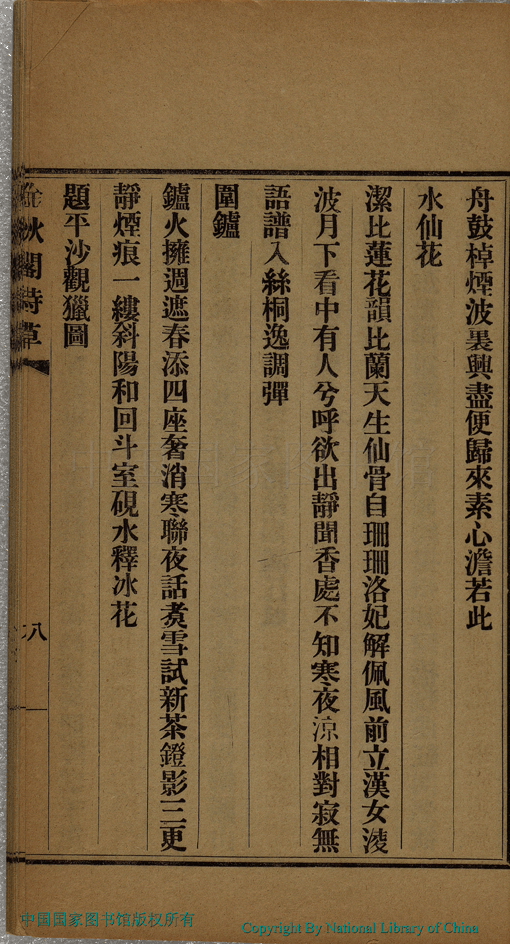 舟鼓棹煙波裏興盡便歸來素心澹若此
水仙花
潔比蓮花韻比蘭天生仙骨自珊珊洛妃解佩風前立漢女淩
波月下看中有人兮呼欲出靜聞香處不知寒夜涼相對寂無
語譜入絲桐逸調彈
圍鑪
鑪火擁週遮春添四座奢消寒聯夜話煑雪試新茶鐙影三更
靜煙痕一縷斜陽和回斗室硯水釋冰花
題平沙觀獵圖
秋閣詩草
八
中国国家图书馆版权所有
Copyright By National Library of China